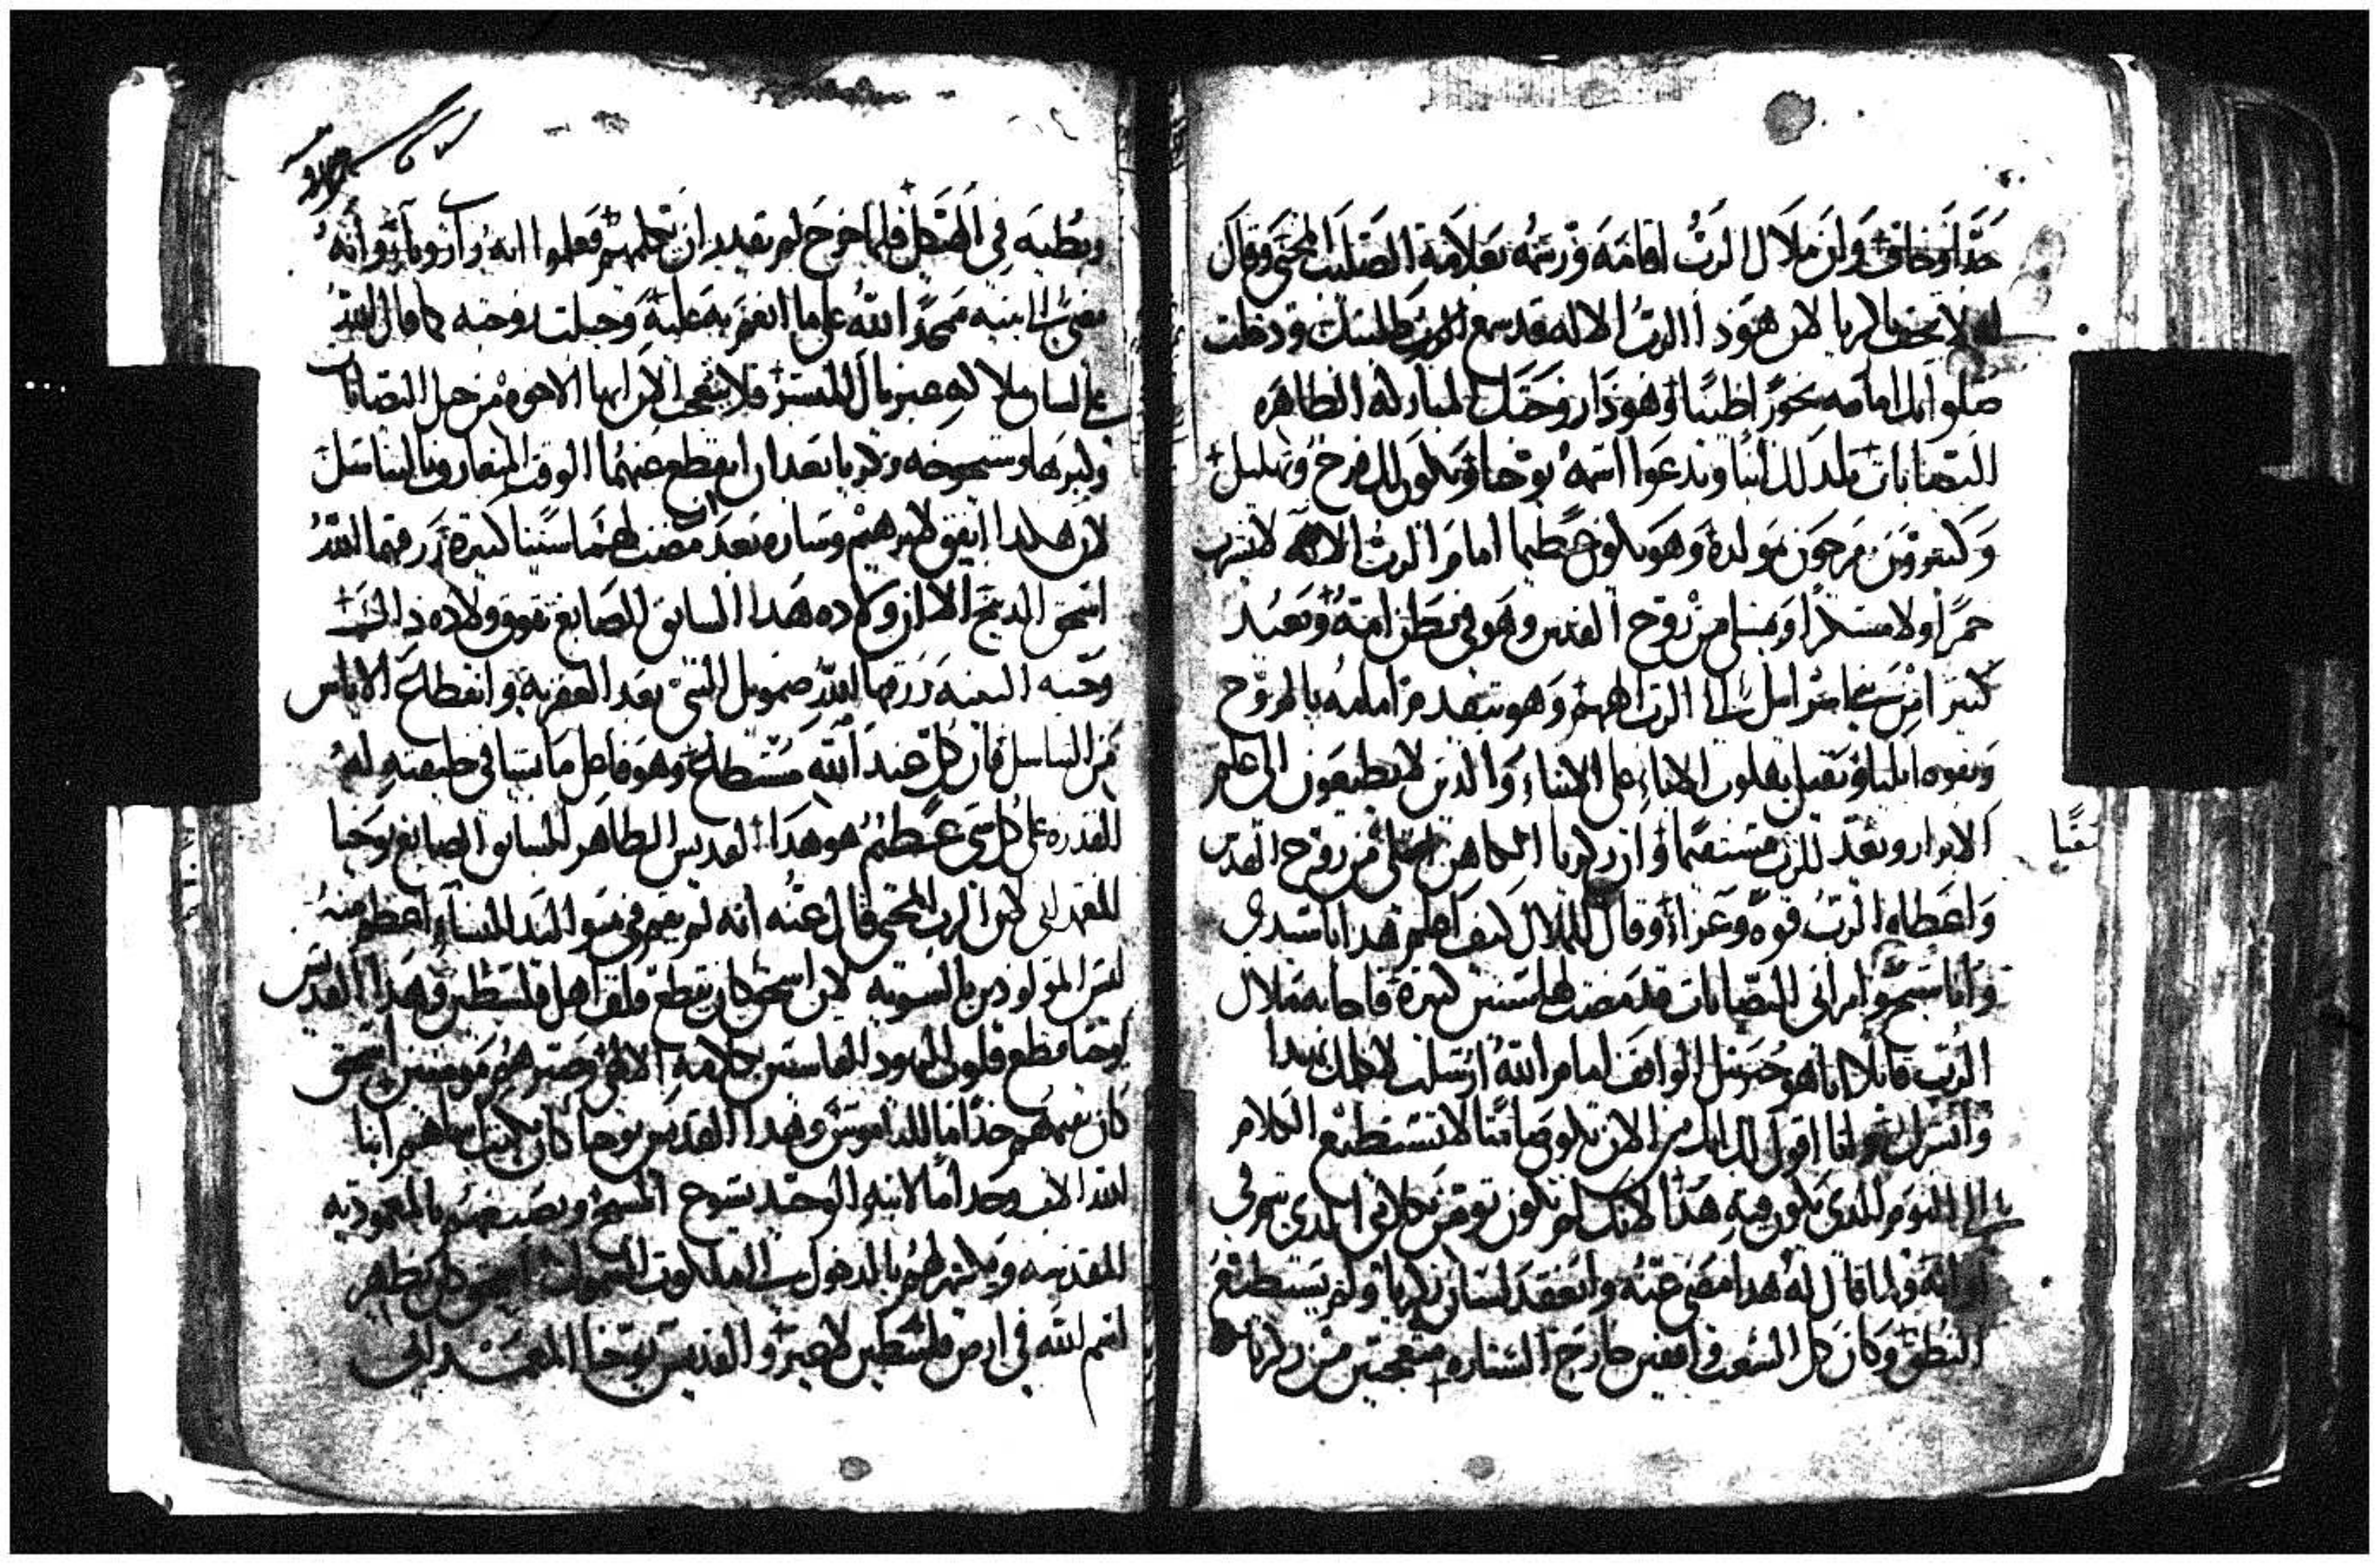 جدا وخاف وان ملاك الرب اقامه ورشمه بعلامة الصليب المحيي وقال
له لا تخف يا زكريا لان هوذا الرب الاله قد سمع طلبتك ودخلت
صلواتك امامه بخورا طيبا وهوذا زوجتك المباركه الطاهره
اليصابات تلد لك ابنا وتدعوا اسمه يوحنا ويكون لك فرح وتهليل
وكثيرون يفرحون بمولده وهو يكون عظيما امام الرب الاله لا يشرب
خمرا ولا مسكرا ويمتلي من روح القدس وهو في بطن امه ويعيد
كثيرا من بني اسراييل الى الرب الههم وهو يتقدم امامه بالروح
وبقوه ايليا ويقبل بقلوب الاباء على الابناء والذين لا يطيعون الى علم
الابرار ويعد للرب مستقيما وان زكريا الكاهن امتلى من روح القدس
شعبا
واعطاه الرب قوه وعزاء وقال للملاك كيف اعلم هدا يا سيدي
وانا شيخ وامراتي اليصابات قد مضت لها سنين كثيرة فاجابه ملاك
الرب قايلا انا هو جبرييل الواقف امام الله ارسلت لاكلمك بهدا
وابشرك وانا اقول لك انك من الان تكون صامتا لا تستطيع الكلام
الى اليوم الدي يكون فيه هدا لانك لم تكون تومن بكلامي الدي يتم في
اوانه ولما قال له هدا مضى عنه وانعقد لسان زكريا ولم يستطيع
النطق وكان كل الشعب واقفين خارج الستاره متعجبين من زكريا
وبطيه في الهيكل فلما خرج لم يقدر ان يكلمهم فعلموا انه
مضى الى بيته ممجدا الله على ما انعم به عليه وحبلت زوجته كما قال الله
على لسان ملاكه غبريال المبشر فلا يتعجب لكن ايها الاخوه من حبل اليصابات
وكبرها وشيخوخه زكريا بعد ان انقطع عنهما الوقت المتعارف بالتناسل
لان هكدا اتفق لابرهيم وساره بعد ان مضت لهما سنينا كثيرة رزقهما الله
اسحق الدبيح الا ان ولاده هدا السابق الصابغ تفوق ولاده داك
وحنه النبيه رزقها الله صمويل النبي بعد العقريه وانقطاع الاياس
من التناسل فان كل عند الله مستطاع وهو فاعل ما يشا في خليقته له
القدره على كل شي عظيم هو هدا القديس الطاهر السابق الصابغ يوحنا
المعمداني لان الرب المحيي قال عنه انه لم يقم في مواليد النسا اعظم منه
ليس المولودين بالسويه لان اسحق كان يقطع قلوب اهل فلسطين وهدا القديس
يوحنا قطع قلوب اليهود القاسيين بكلامه الالاهي وصيرهم مومنين اسحق
كان يفهم خداما للناموس وهدا القديس يوحنا كان يكتب اسماهم ابنا
لله الاب وخداما لابنه الوحيد يسوع المسيح ويصبغهم بالمعموديه
المقدسه ويبشرهم بالدخول الى ملكوت السموات اسحق كان يظهر
اسم الله في ارض فلسطين لا غير والقديس يوحنا المعمداني